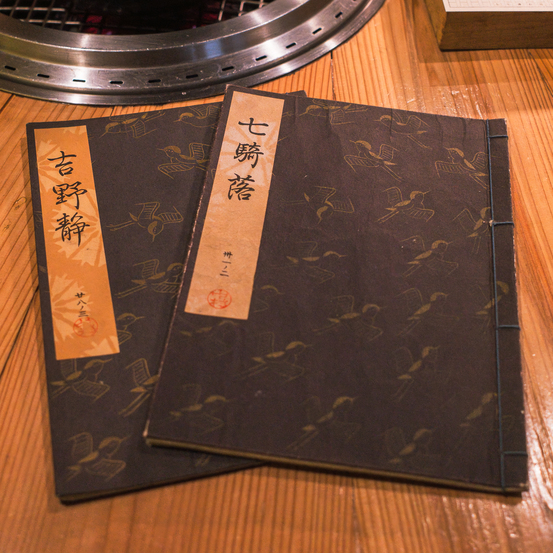 吉野静
廿八ノ三
七騎落
卅一ノ二